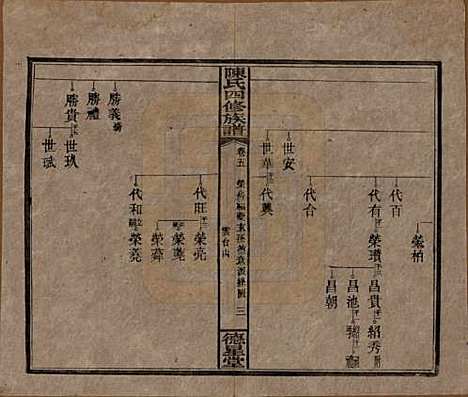 榮柏
代百
代有 榮瓚 昌貴 紹秀
昌池
昌朝
代合
世安
世華 代興
陳氏四修族譜
卷五
雲台山
三
德星堂
勝義
勝禮
勝貴 世玖
世珷
代旺 榮亮
榮堯
榮舜
代和 榮堯